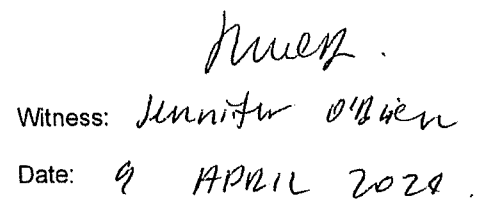 Witness: Jennifer O'Brien
Date: 9 APRIL 2024.